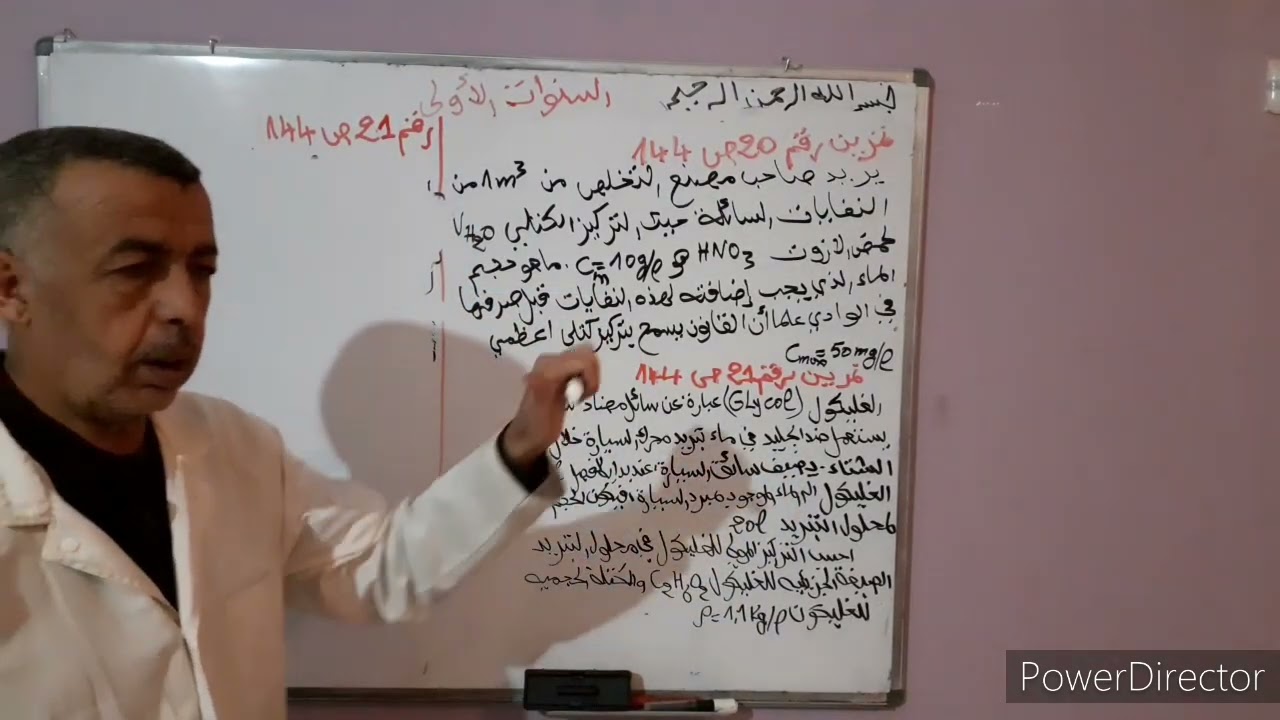 بسم الله الرحمن الرحيم السنوات الأولى
تمرين رقم 20 ص 144
يريد صاحب مصنع التخلص من 1m³ من
النفايات السائلة حيث التركيز الكتلي
لحمض الأزوت HNO3 هو Cm=10g/l. ما هو حجم VH2O
الماء الذي يجب إضافته لهذه النفايات قبل صرفها
في الوادي علما أن القانون يسمح بتركيز كتلي اعظمي
Cmax=50mg/l
تمرين رقم 21 ص 144
الغليكول (Glycol) عبارة عن سائل مضاد
يستعمل ضد الجليد في ماء تبريد محرك السيارة خلال
الشتاء. يضيف سائق السيارة عند بداية
الغليكول الى الماء الموجود بمبرد السيارة فيكون الحجم
لمحلول التبريد 20l
احسب التركيز المولي للغليكول في محلول التبريد
الصيغة الجزيئية للغليكول C2H6O2 والكتلة الحجمية
للغليكول ρ=1,1Kg/l
رقم 21 ص 144
PowerDirector